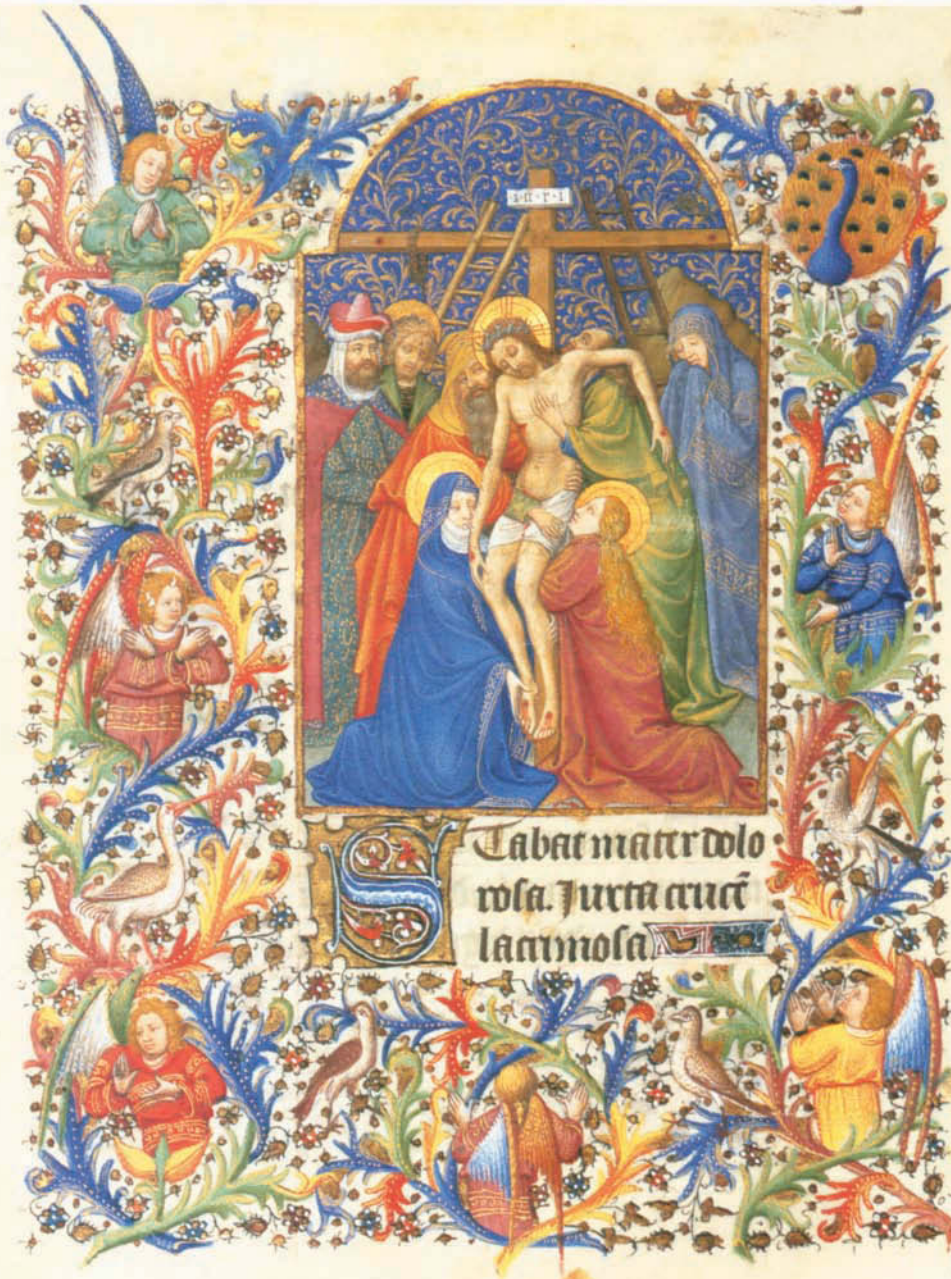 I·N·R·I
Stabat mater dolo
rosa. Iuxta crucē
lacrimosa